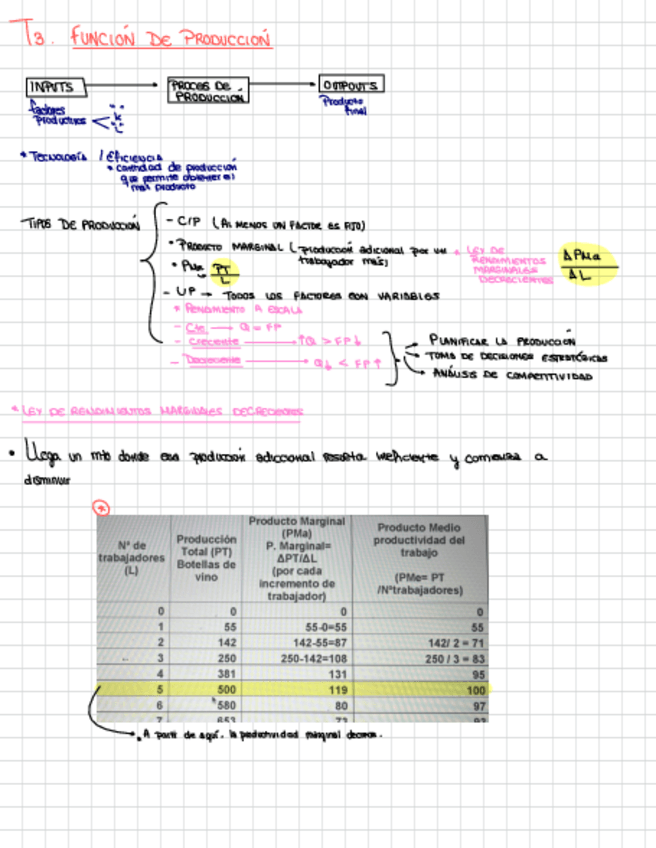 T3. FUNCIÓN DE PRODUCCIÓN
INPUTS
PROCES DE PRODUCCIÓN
OUTPUTS
factores productivos
K
L
Producto final
* TECNOLOGÍA / EFICIENCIA
• cantidad de producción
que permite obtener el
más producto
TIPOS DE PRODUCCIÓN
- C/P (AL MENOS UN FACTOR ES FIJO)
• PRODUCTO MARGINAL (producción adicional por un
trabajador más)
* LEY DE
RENDIMIENTOS
MARGINALES
DECRECIENTES
Δ PMa
Δ L
• PMe PT
L
- L/P → TODOS LOS FACTORES SON VARIABLES
* RENDIMIENTO A ESCALA
- Cte. → Q = FP
- Creciente → ↑Q > FP↓
- Decreciente → Q↓ < FP↑
PLANIFICAR LA PRODUCCIÓN
TOMA DE DECISIONES ESTRATÉGICAS
ANÁLISIS DE COMPETITIVIDAD
* LEY DE RENDIMIENTOS MARGINALES DECRECIENTES
• Llega un mto donde esa producción adiccional resulta ineficiente y comienza a
disminuir
*
Nº de
trabajadores
(L)
Producción
Total (PT)
Botellas de
vino
Producto Marginal
(PMa)
P. Marginal=
ΔPT/ΔL
(por cada
incremento de
trabajador)
Producto Medio
productividad del
trabajo
(PMe= PT
/Nºtrabajadores)
0 0 0 0
1 55 55-0=55 55
2 142 142-55=87 142/ 2 = 71
3 250 250-142=108 250 / 3 = 83
4 381 131 95
5 500 119 100
6 580 80 97
7 653 73 93
• A partir de aquí, la productividad marginal decrece.